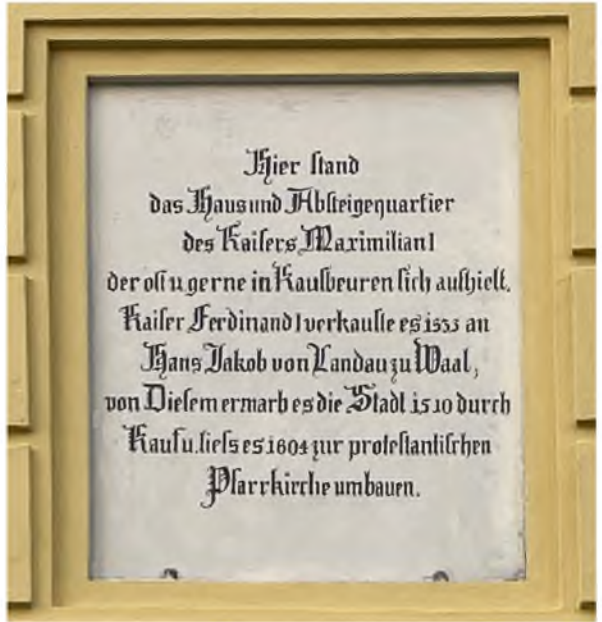 Hier stand
das Haus und Absteigequartier
des Kaisers Maximilian I
der oft u gerne in Kaufbeuren sich aufhielt.
Kaiser Ferdinand I verkaufte es 1533 an
Hans Jakob von Landau zu Waal,
von Diesem ermarb es die Stadt 1510 durch
Kauf u. liess es 1604 zur protestantischen
Pfarrkirche umbauen.